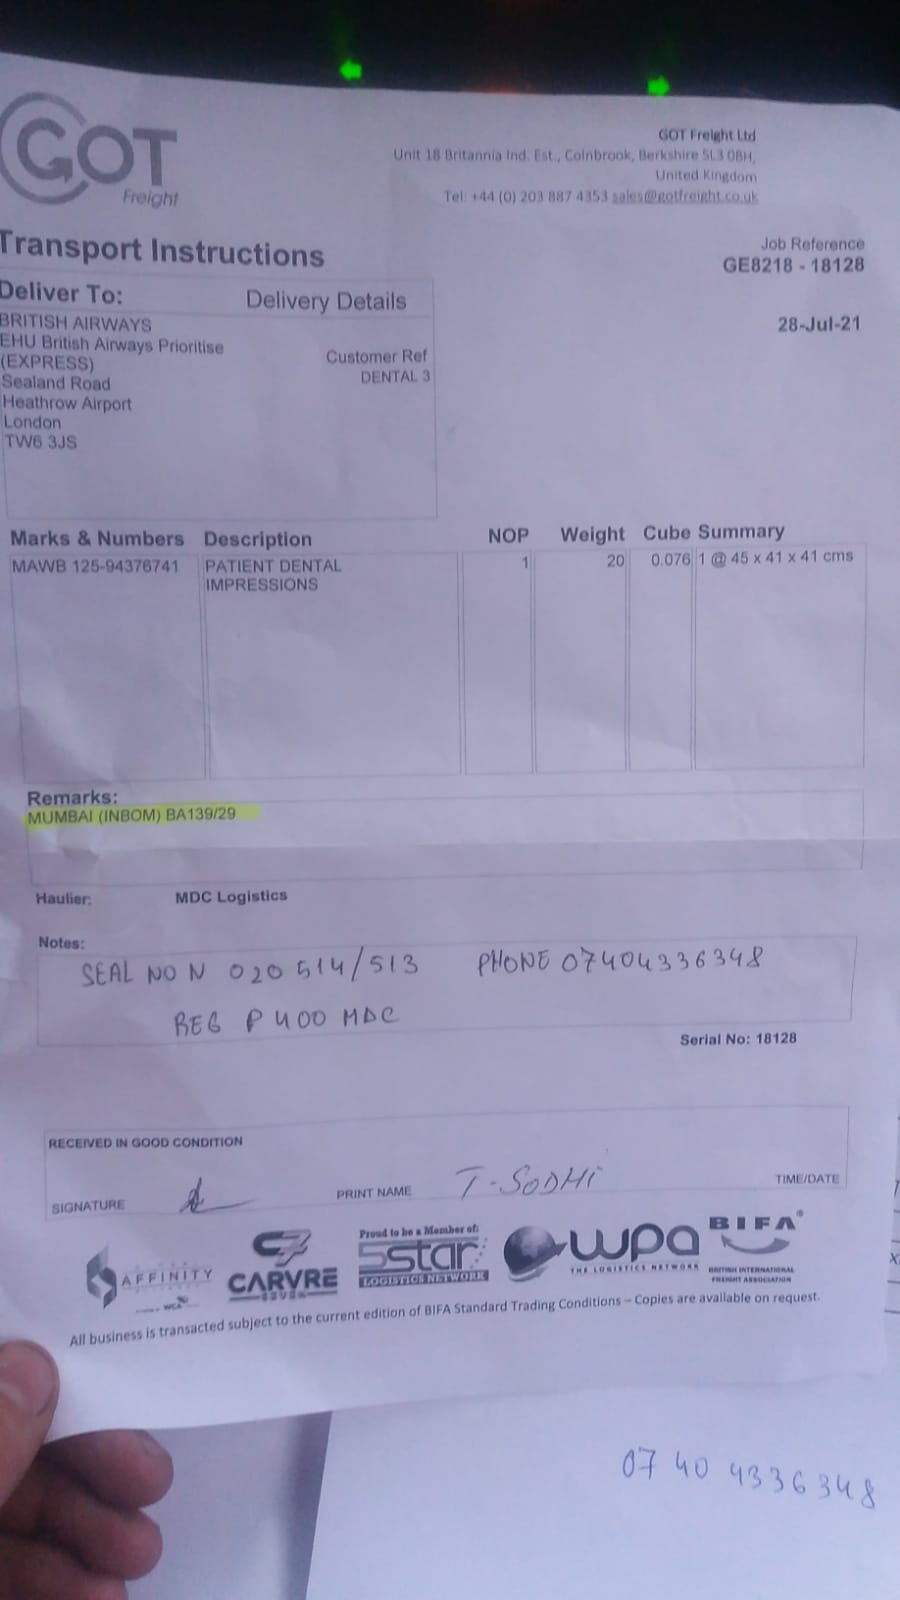 GOT
Freight
GOT Freight Ltd
Unit 18 Britannia Ind. Est., Colnbrook, Berkshire SL3 0BH,
United Kingdom
Tel: +44 (0) 203 887 4353 sales@gotfreight.co.uk
Transport Instructions
Job Reference
GE8218 - 18128
28-Jul-21
Deliver To:
Delivery Details
BRITISH AIRWAYS
EHU British Airways Prioritise
(EXPRESS)
Sealand Road
Heathrow Airport
London
TW6 3JS
Customer Ref
DENTAL 3
Marks & Numbers Description NOP Weight Cube Summary
MAWB 125-94376741 PATIENT DENTAL 1 20 0.076 1 @ 45 x 41 x 41 cms
IMPRESSIONS
Remarks:
MUMBAI (INBOM) BA139/29
Haulier: MDC Logistics
Notes:
SEAL NO N 020514/513 PHONE 07404336348
REG P400 MDC
Serial No: 18128
RECEIVED IN GOOD CONDITION
SIGNATURE PRINT NAME T-SODHi TIME/DATE
AFFINITY
WCA
CARVRE
SEVEN
Proud to be a Member of:
5star
LOGISTICS NETWORK
wpa
THE LOGISTICS NETWORK
BIFA
BRITISH INTERNATIONAL
FREIGHT ASSOCIATION
All business is transacted subject to the current edition of BIFA Standard Trading Conditions – Copies are available on request.
07 40 4336348